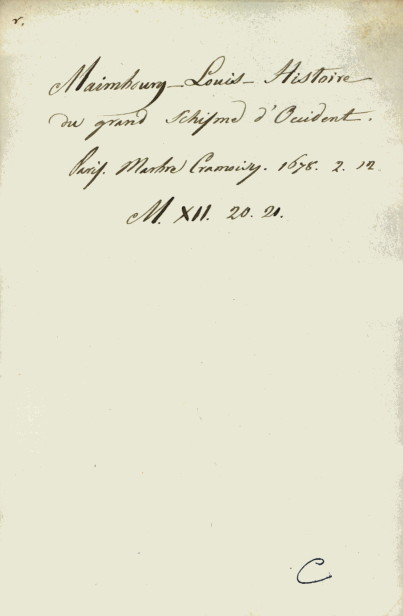 r.
Maimbourg - Louis - Histoire
du grand Schisme d'Occident.
Paris. Marbre Cramoisy. 1678. 2. 12
M. XII. 20. 21.
C